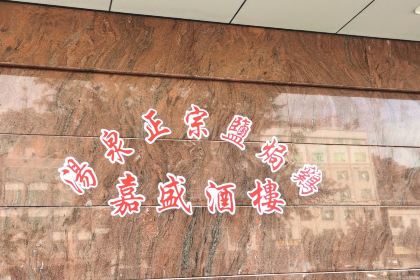 湯泉正宗鹽焗鷄
嘉盛酒樓